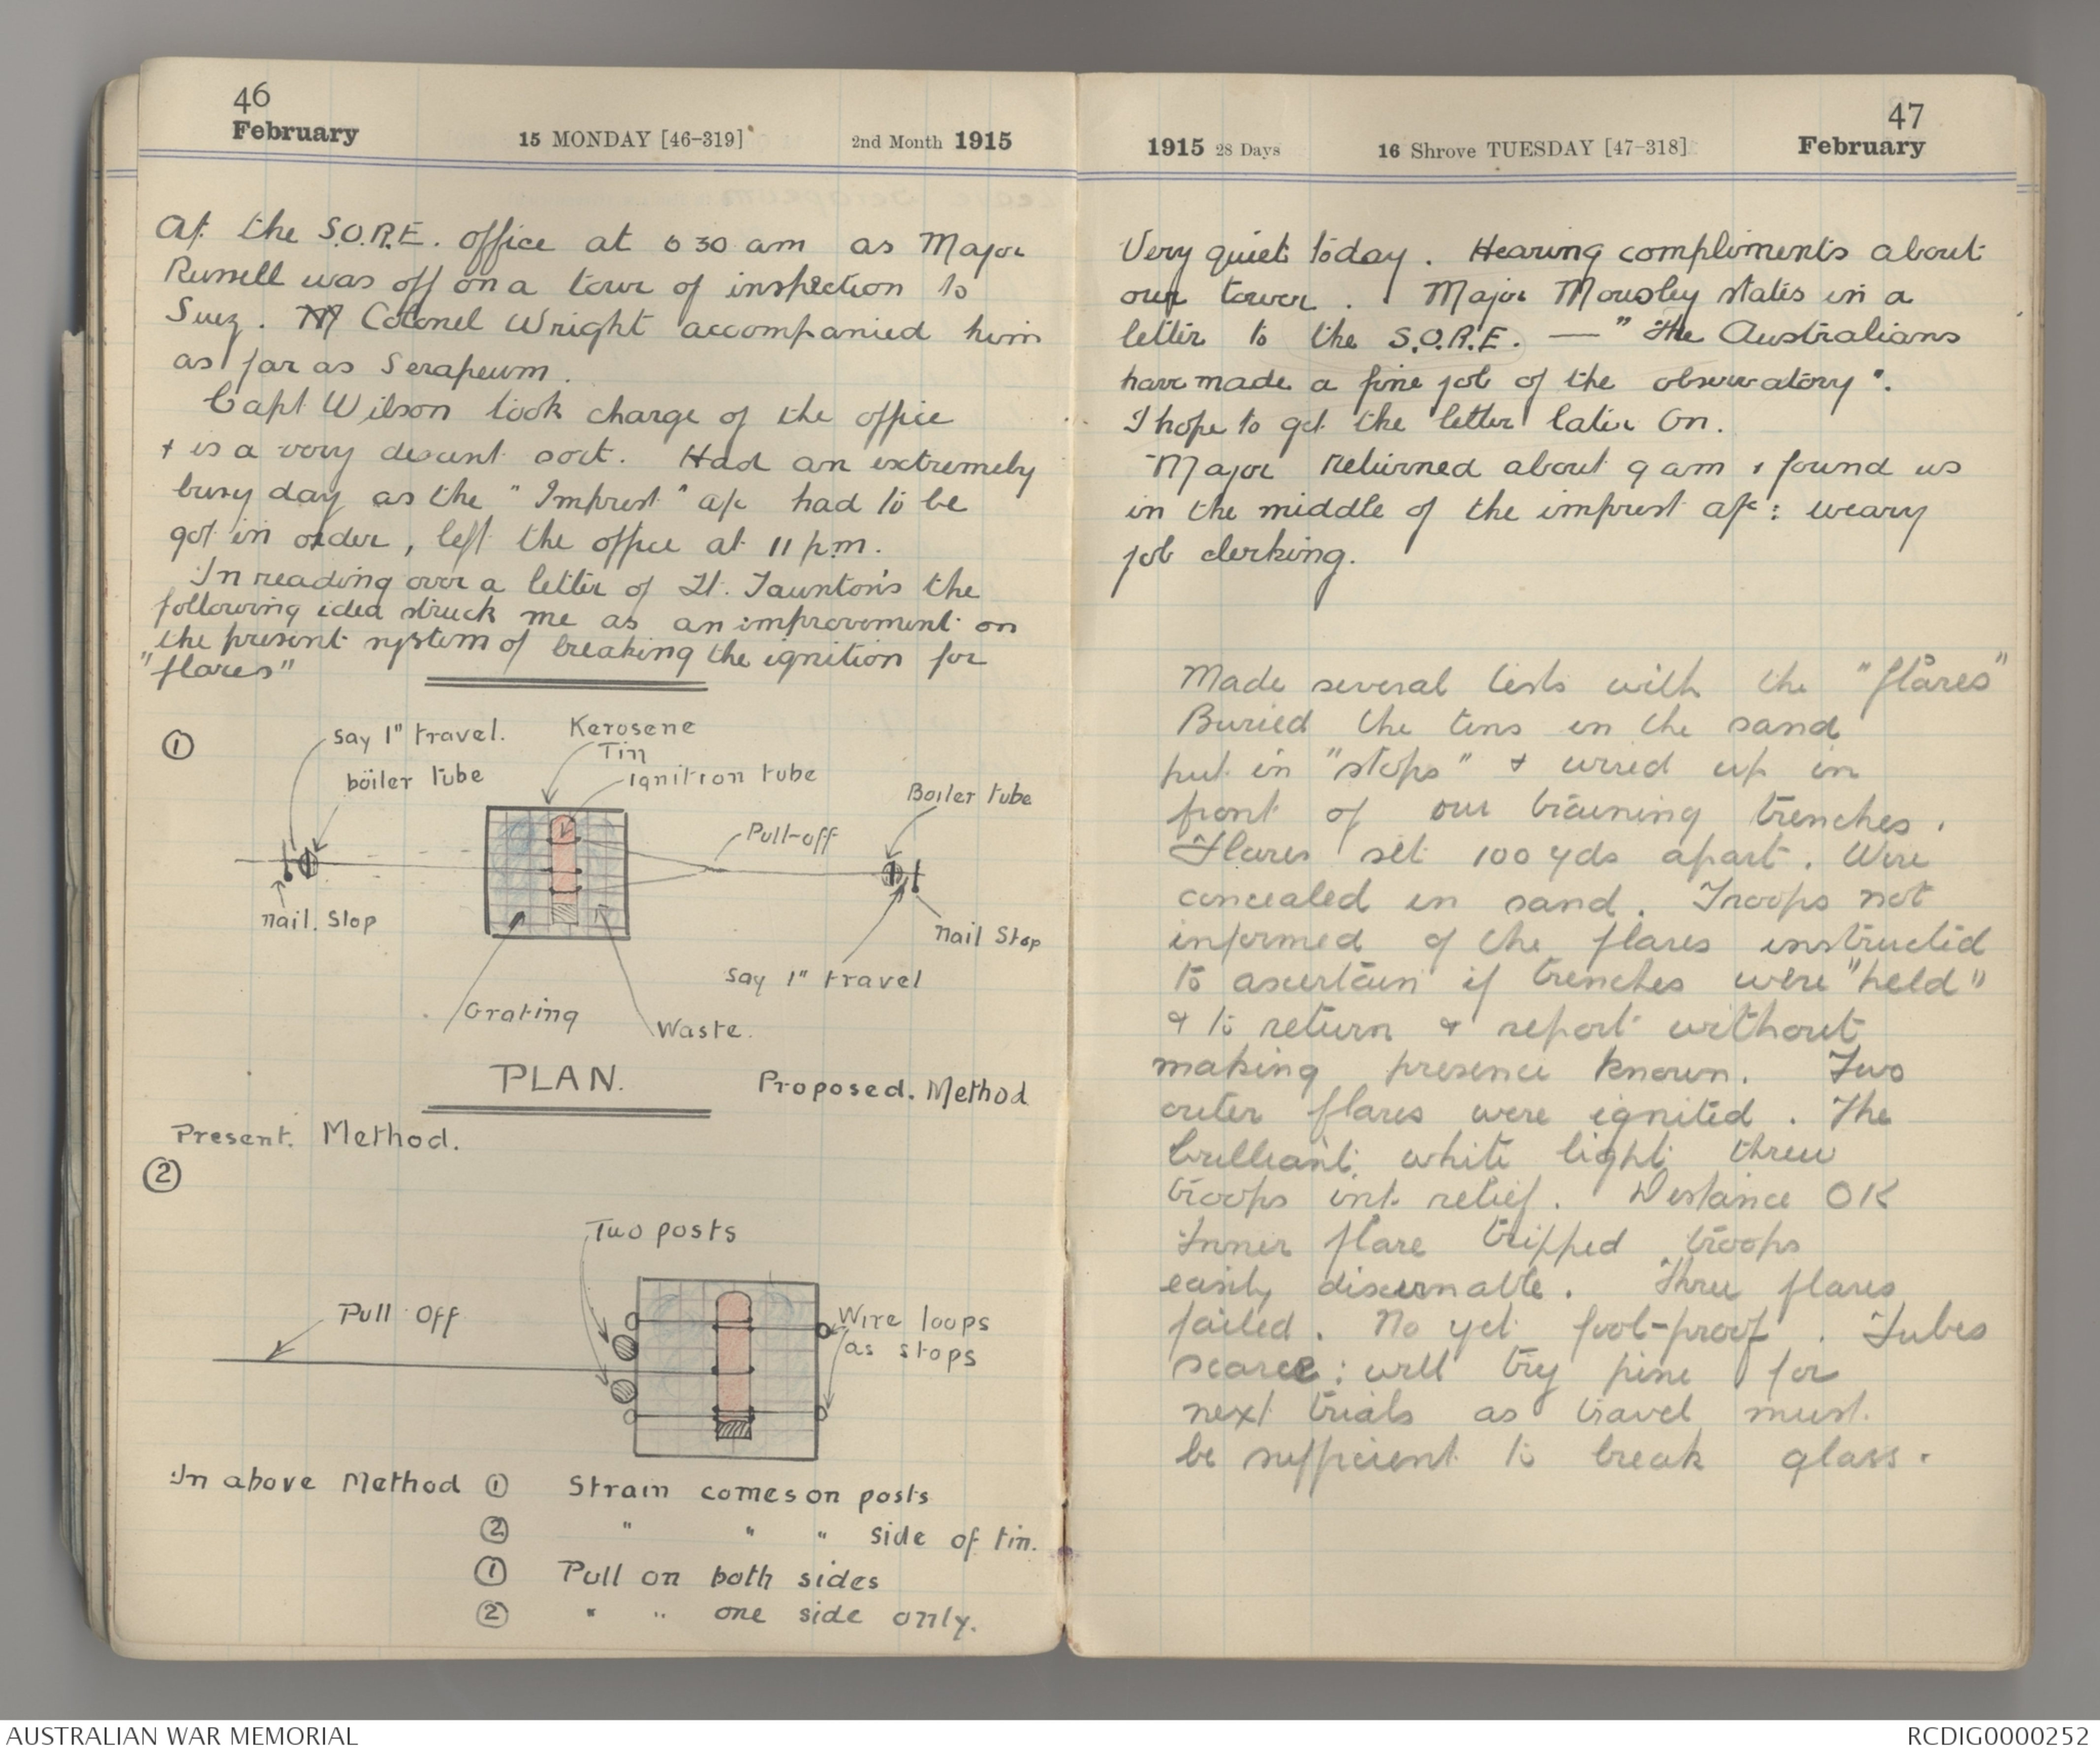 46
February
15 MONDAY [46-319]
2nd Month 1915
At the S.O.R.E. office at 6 30 am as Major
Russell was off on a tour of inspection to
Suez. Colonel Wright accompanied him
as far as Serapeum.
Capt Wilson took charge of the office
+ is a very decent sort. Had an extremely
busy day as the "Imprest" a/c had to be
got in order, left the office at 11 p.m.
In reading over a letter of Lt. Taunton's the
following idea struck me as an improvement on
the present system of breaking the ignition for
"flares"
①
say 1" travel.
boiler tube
Kerosene
Tin
ignition tube
Boiler tube
Pull-off
nail. Stop
nail Stop
say 1" travel
Grating
Waste.
PLAN.
Proposed. Method
Present. Method.
②
Two posts
Pull Off
Wire loops
as stops
In above Method ① Strain comes on posts
② " " " side of tin.
① Pull on both sides
② " " one side only.
47
1915 28 Days
16 Shrove TUESDAY [47-318]
February
Very quiet today. Hearing compliments about
our tower. Major Mousley states in a
letter to the S.O.R.E. — "The Australians
have made a fine job of the observatory".
I hope to get the letter later on.
Major returned about 9 am + found us
in the middle of the imprest a/c: weary
job clerking.
Made several tests with the "flares"
Buried the tins in the sand
put in "stops" + wired up in
front of our training trenches.
Flares set 100 yds apart. Wire
concealed in sand. Troops not
informed of the flares instructed
to ascertain if trenches were "held"
+ to return + report without
making presence known. Two
outer flares were ignited. The
brilliant white light threw
troops int. relief. Distance OK
Inner flare tripped troops
easily discernable. Three flares
failed. No yet fool-proof. Tubes
scarce: will try pine for
next trials as travel must
be sufficient to break glass.
AUSTRALIAN WAR MEMORIAL
RCDIG0000252